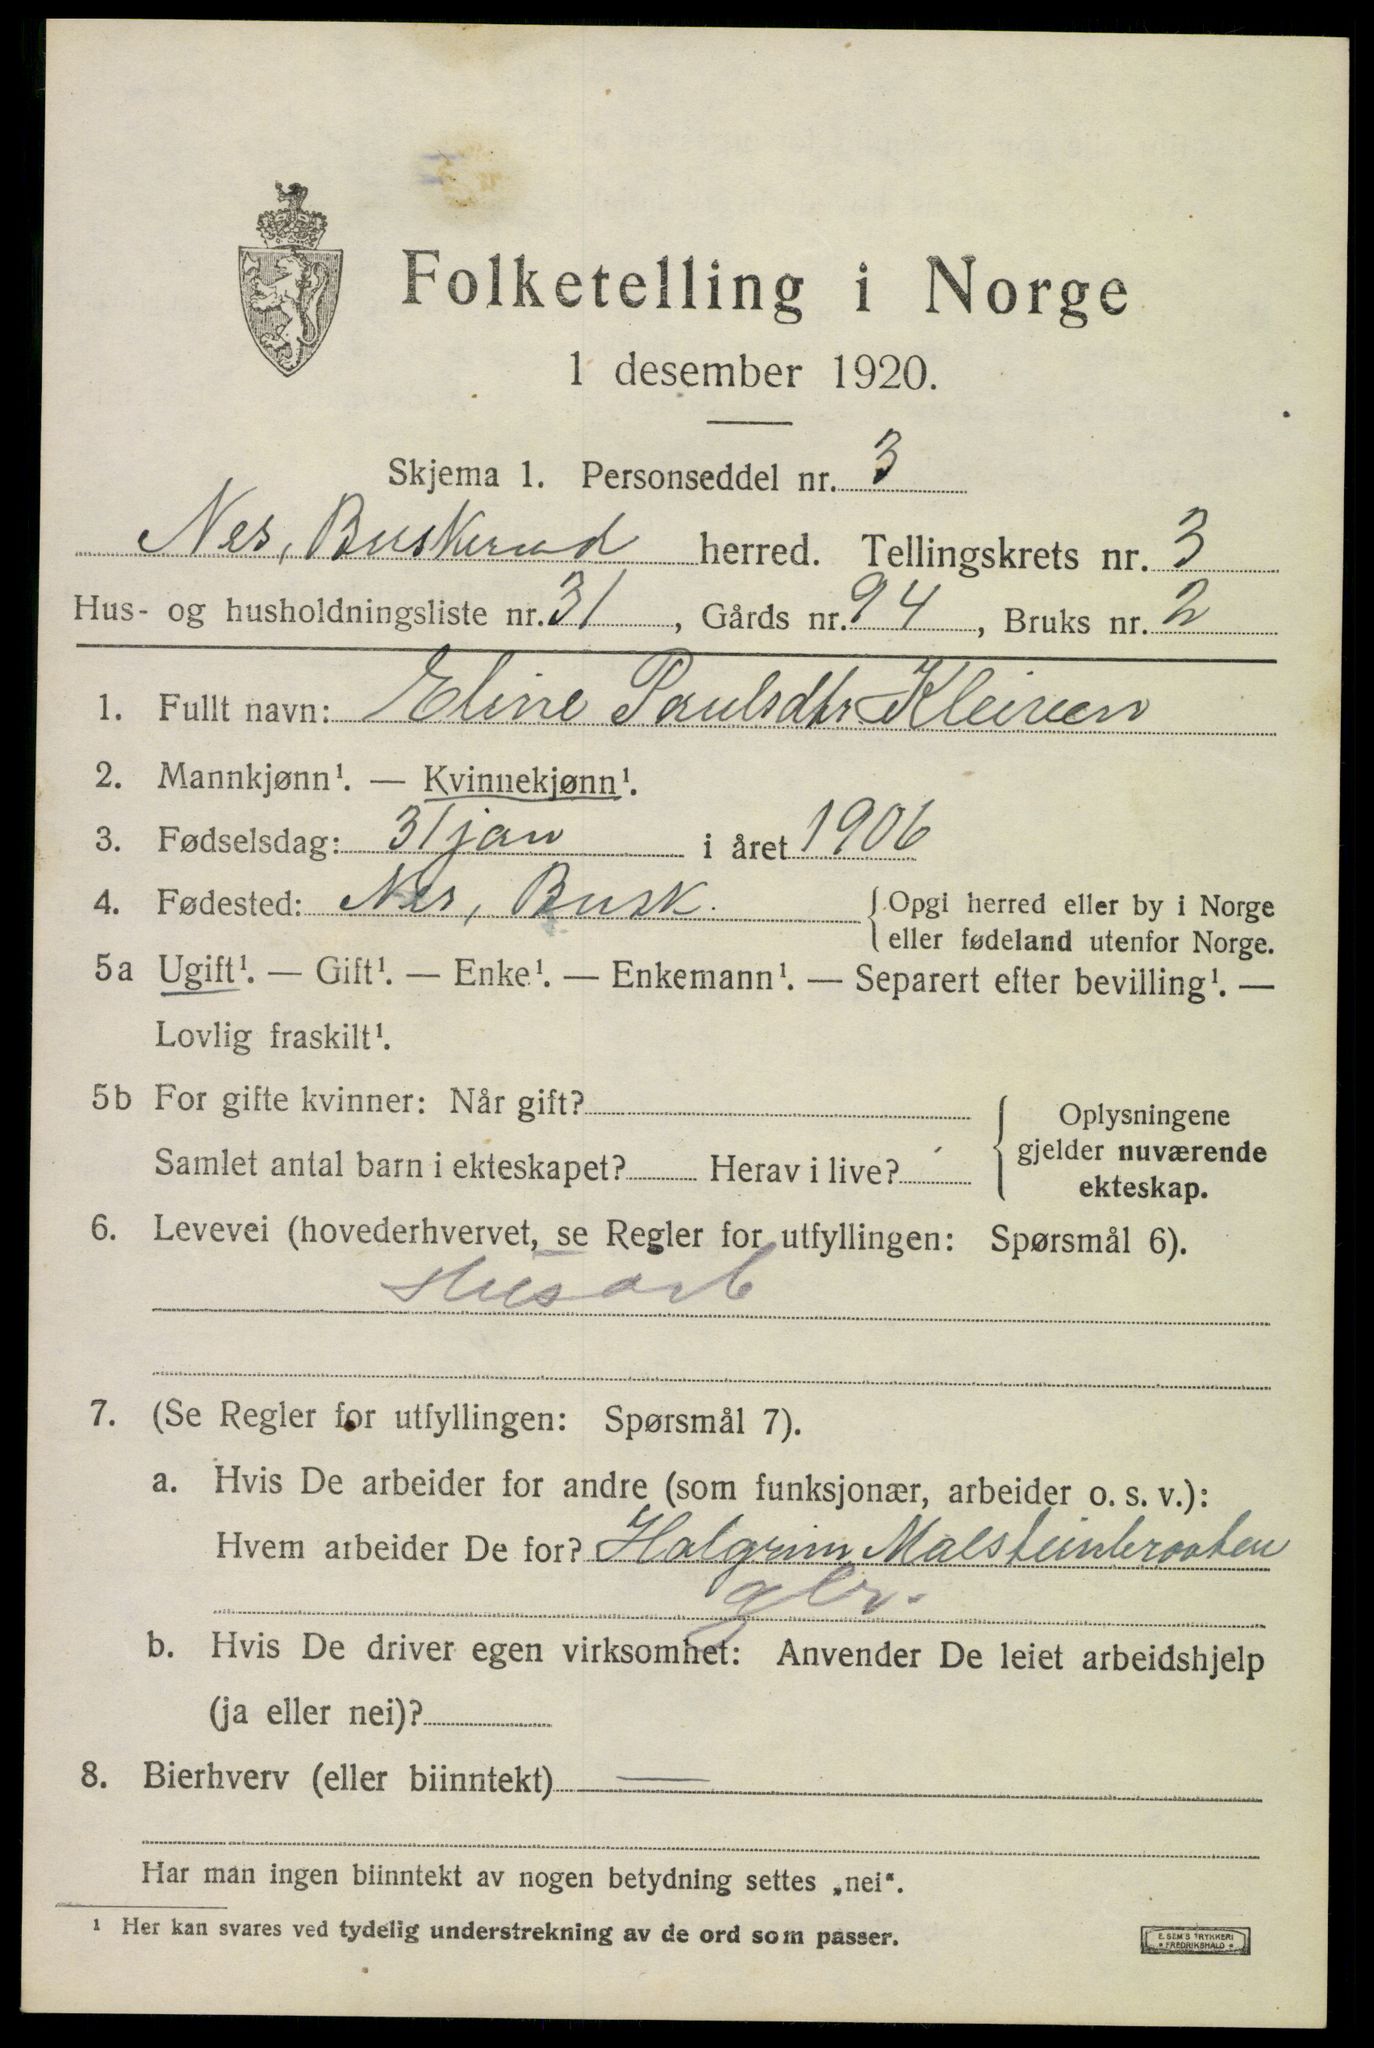 Folketelling i Norge
1 desember 1920.
Skjema 1. Personseddel nr. 3
Nes, Buskerud herred. Tellingskrets nr. 3
Hus- og husholdningsliste nr. 31, Gårds nr. 94, Bruks nr. 2
1. Fullt navn: Eline Paulsdtr Kleiven
2. Mannkjønn¹. — Kvinnekjønn¹.
3. Fødselsdag: 31 jan i året 1906
4. Fødested: Nes, Busk. { Opgi herred eller by i Norge
eller fødeland utenfor Norge.
5a Ugift¹. — Gift¹. — Enke¹. — Enkemann¹. — Separert efter bevilling¹. —
Lovlig fraskilt¹.
5b For gifte kvinner: Når gift?
Samlet antal barn i ekteskapet? Herav i live?
Oplysningene
gjelder nuværende
ekteskap.
6. Levevei (hovederhvervet, se Regler for utfyllingen: Spørsmål 6).
Husarb
7. (Se Regler for utfyllingen: Spørsmål 7).
a. Hvis De arbeider for andre (som funksjonær, arbeider o. s. v.):
Hvem arbeider De for? Halgrim Malsteinbraaten
gbr.
b. Hvis De driver egen virksomhet: Anvender De leiet arbeidshjelp
(ja eller nei)?
8. Bierhverv (eller biinntekt) —
Har man ingen biinntekt av nogen betydning settes „nei“.
¹ Her kan svares ved tydelig understrekning av de ord som passer.
E. SEM'S TRYKKERI
• FREDRIKSHALD •